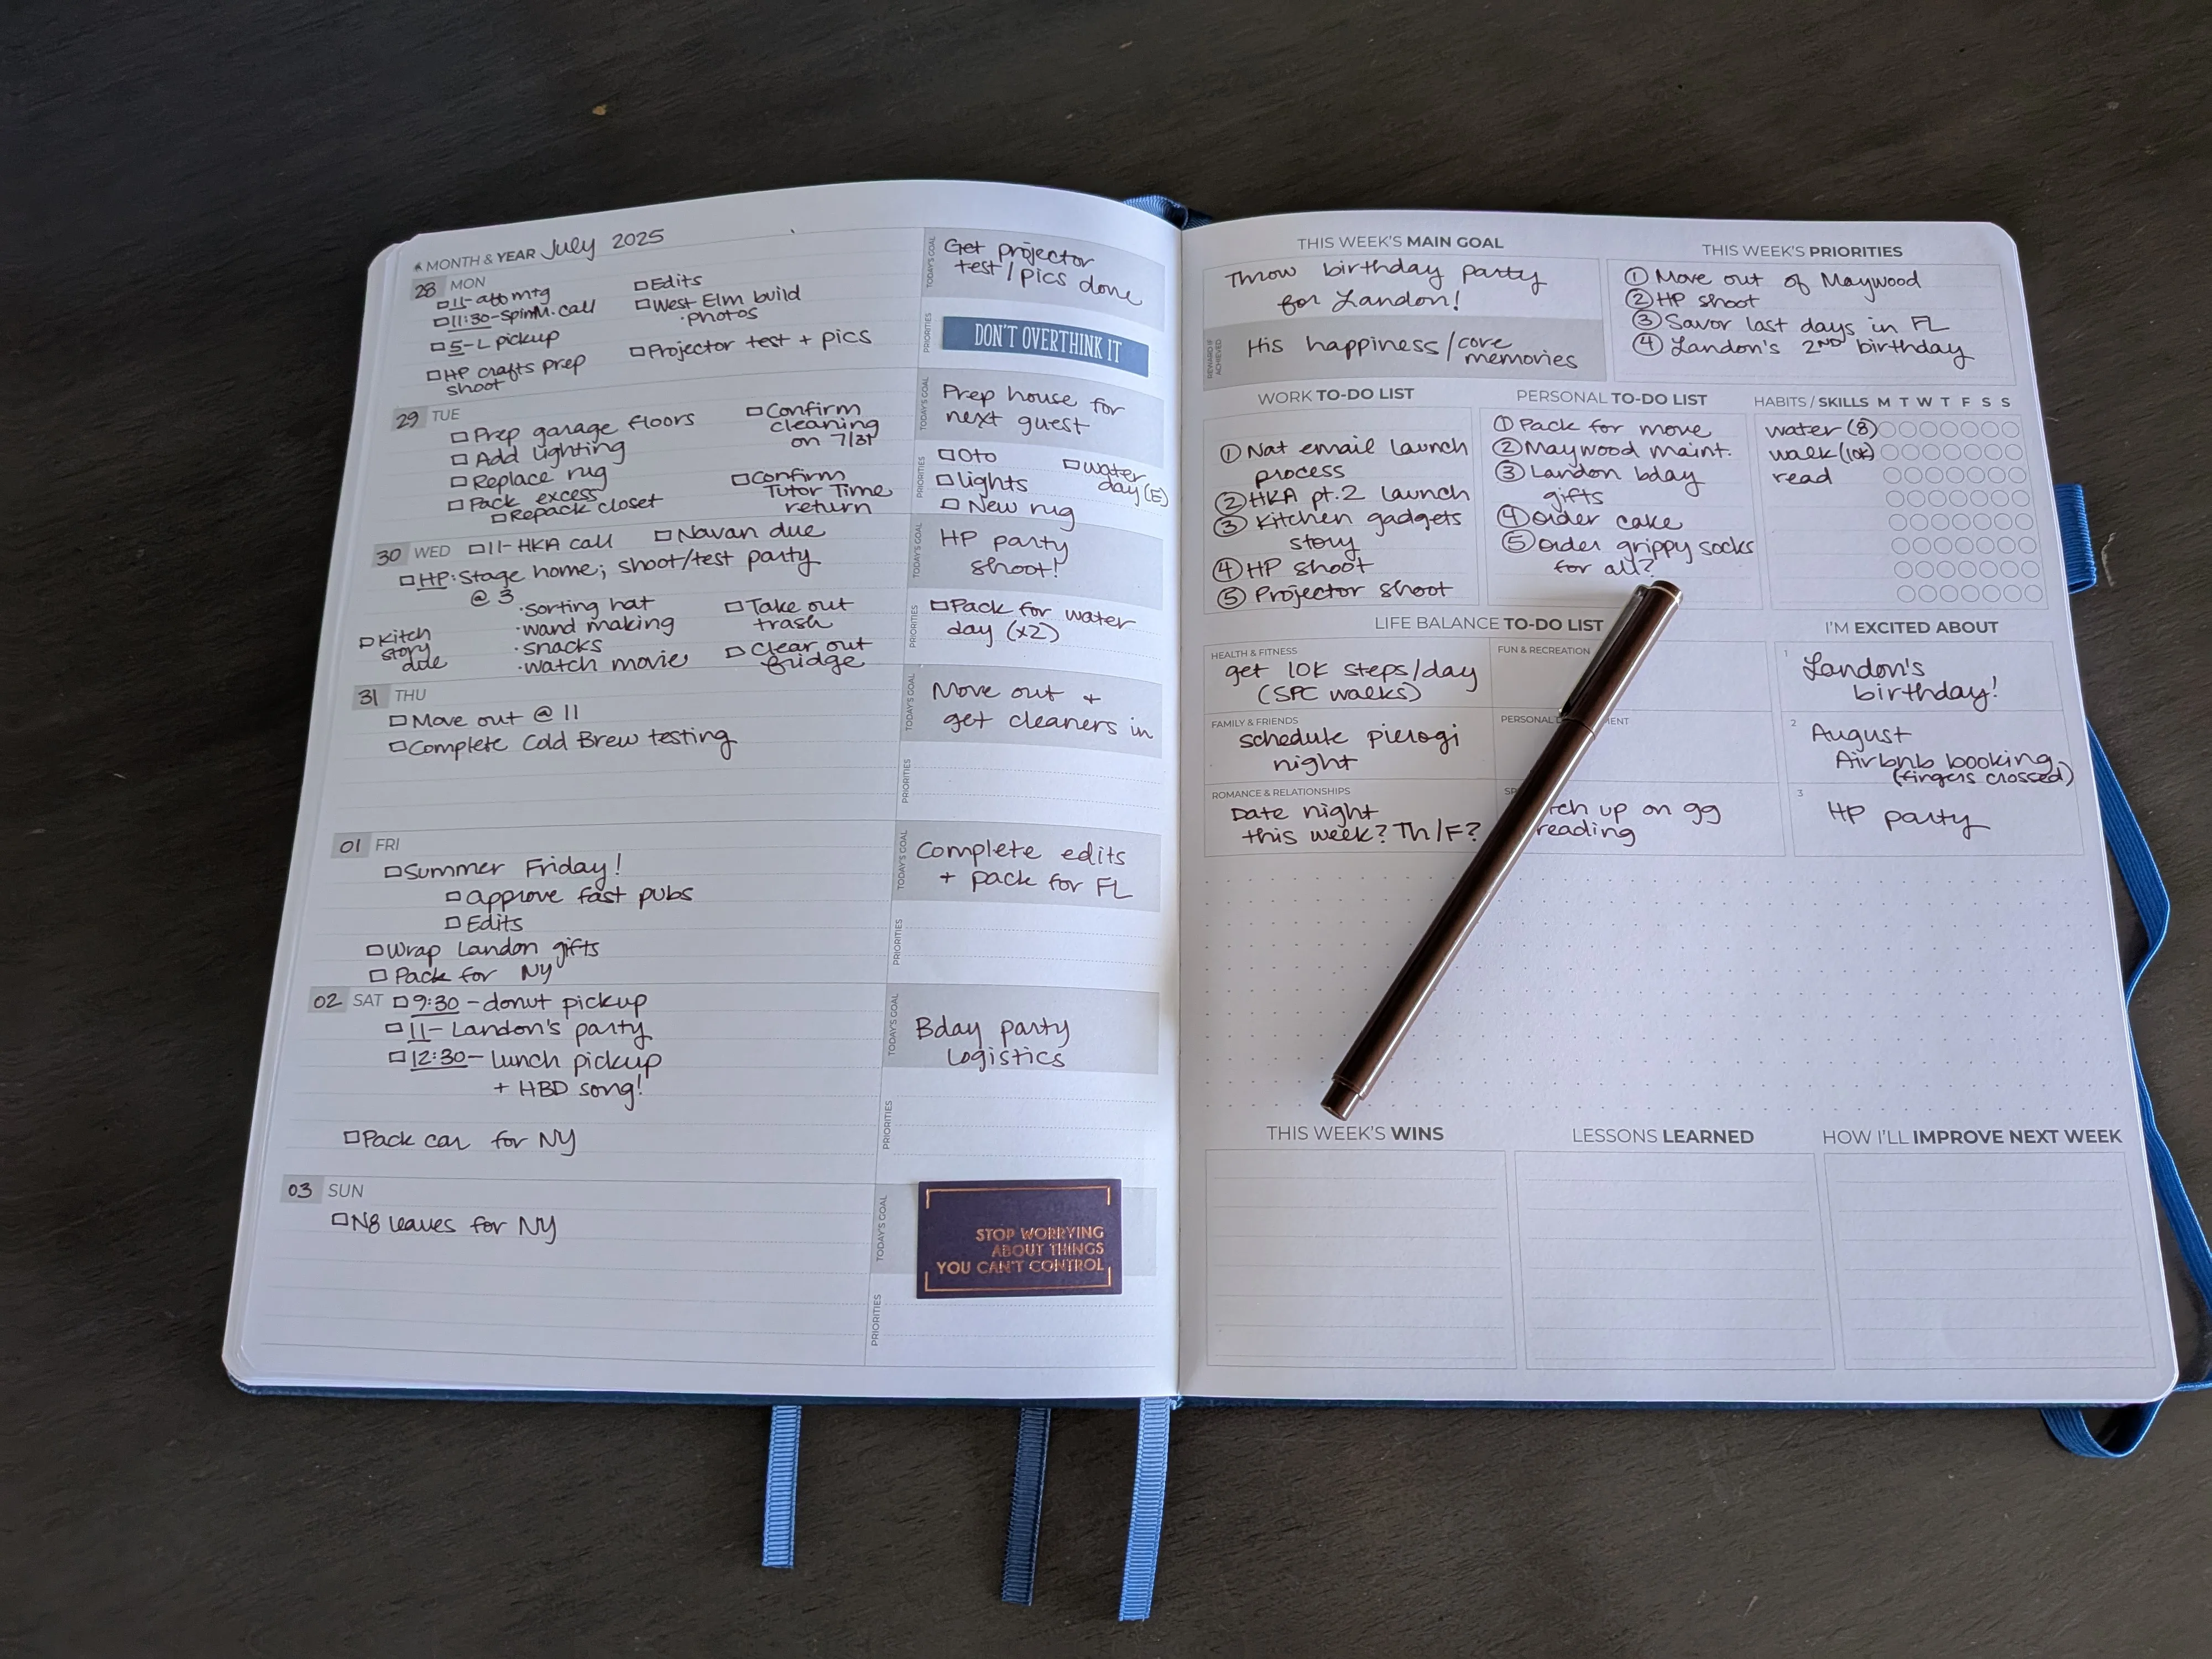 MONTH & YEAR July 2025
28 MON
11- mtg
11:30-SpinM. call
5-L pickup
HP crafts prep
shoot
Edits
West Elm build
·photos
Projector test + pics
TODAY'S GOAL
Get projector
test/pics done
PRIORITIES
DON'T OVERTHINK IT
29 TUE
Prep garage floors
Add lighting
Replace rug
Pack excess
Repack closet
Confirm
cleaning
on 7/31
Confirm
Tutor Time
return
TODAY'S GOAL
Prep house for
next guest
PRIORITIES
Oto
lights
New rug
water
day (E)
30 WED
11-HKA call
Navan due
HP: Stage home; shoot/test party
@ 3
·Sorting hat
·wand making
·snacks
·watch movie
Kitch
story
due
Take out
trash
Clear out
fridge
TODAY'S GOAL
HP party
shoot!
PRIORITIES
Pack for water
day (x2)
31 THU
Move out @ 11
Complete Cold Brew testing
TODAY'S GOAL
Move out +
get cleaners in
PRIORITIES
01 FRI
Summer Friday!
approve fast pubs
Edits
Wrap Landon gifts
Pack for NY
TODAY'S GOAL
Complete edits
+ pack for FL
PRIORITIES
02 SAT
9:30 - donut pickup
11- Landon's party
12:30- lunch pickup
+ HBD song!
Pack car for NY
TODAY'S GOAL
Bday party
logistics
PRIORITIES
03 SUN
N8 leaves for NY
TODAY'S GOAL
STOP WORRYING
ABOUT THINGS
YOU CAN'T CONTROL
PRIORITIES
THIS WEEK'S MAIN GOAL
Throw birthday party
for Landon!
REWARD IF
ACHIEVED
His happiness/core
memories
THIS WEEK'S PRIORITIES
① Move out of Maywood
② HP shoot
③ Savor last days in FL
④ Landon's 2ND birthday
WORK TO-DO LIST
① Nat email launch
process
② HKA pt.2 launch
③ Kitchen gadgets
story
④ HP shoot
⑤ Projector shoot
PERSONAL TO-DO LIST
① Pack for move
② Maywood maint.
③ Landon bday
gifts
④ order cake
⑤ order grippy socks
for all?
HABITS / SKILLS M T W T F S S
water (8)
walk (10K)
read
LIFE BALANCE TO-DO LIST
HEALTH & FITNESS
get 10K steps/day
(SPC walks)
FUN & RECREATION
FAMILY & FRIENDS
schedule pierogi
night
PERSONAL
ROMANCE & RELATIONSHIPS
Date night
this week? Th/F?
up on gg
reading
I'M EXCITED ABOUT
1 Landon's
birthday!
2 August
Airbnb booking
(fingers crossed)
3 HP party
THIS WEEK'S WINS
LESSONS LEARNED
HOW I'LL IMPROVE NEXT WEEK